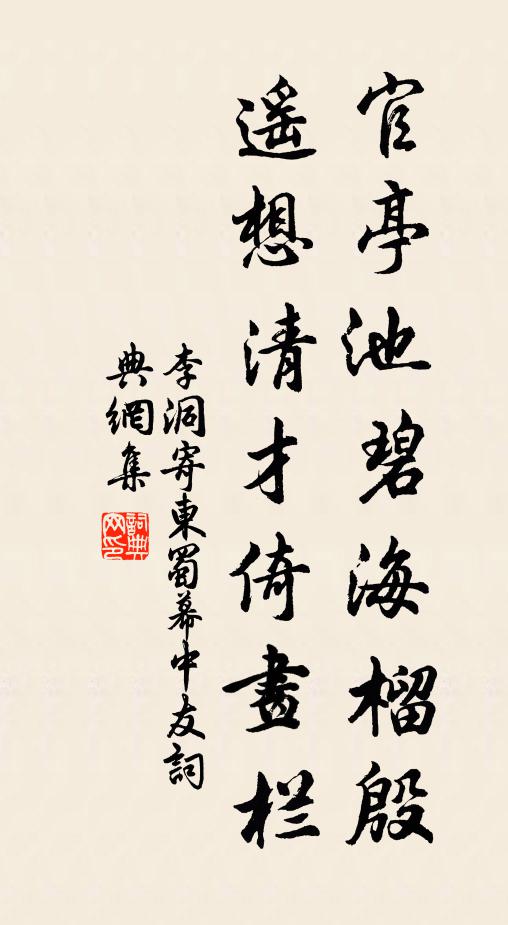 官亭池碧海榴殷
遥想清才倚畫栏
李洞寄東蜀幕中友詞
典網集
詞典網印